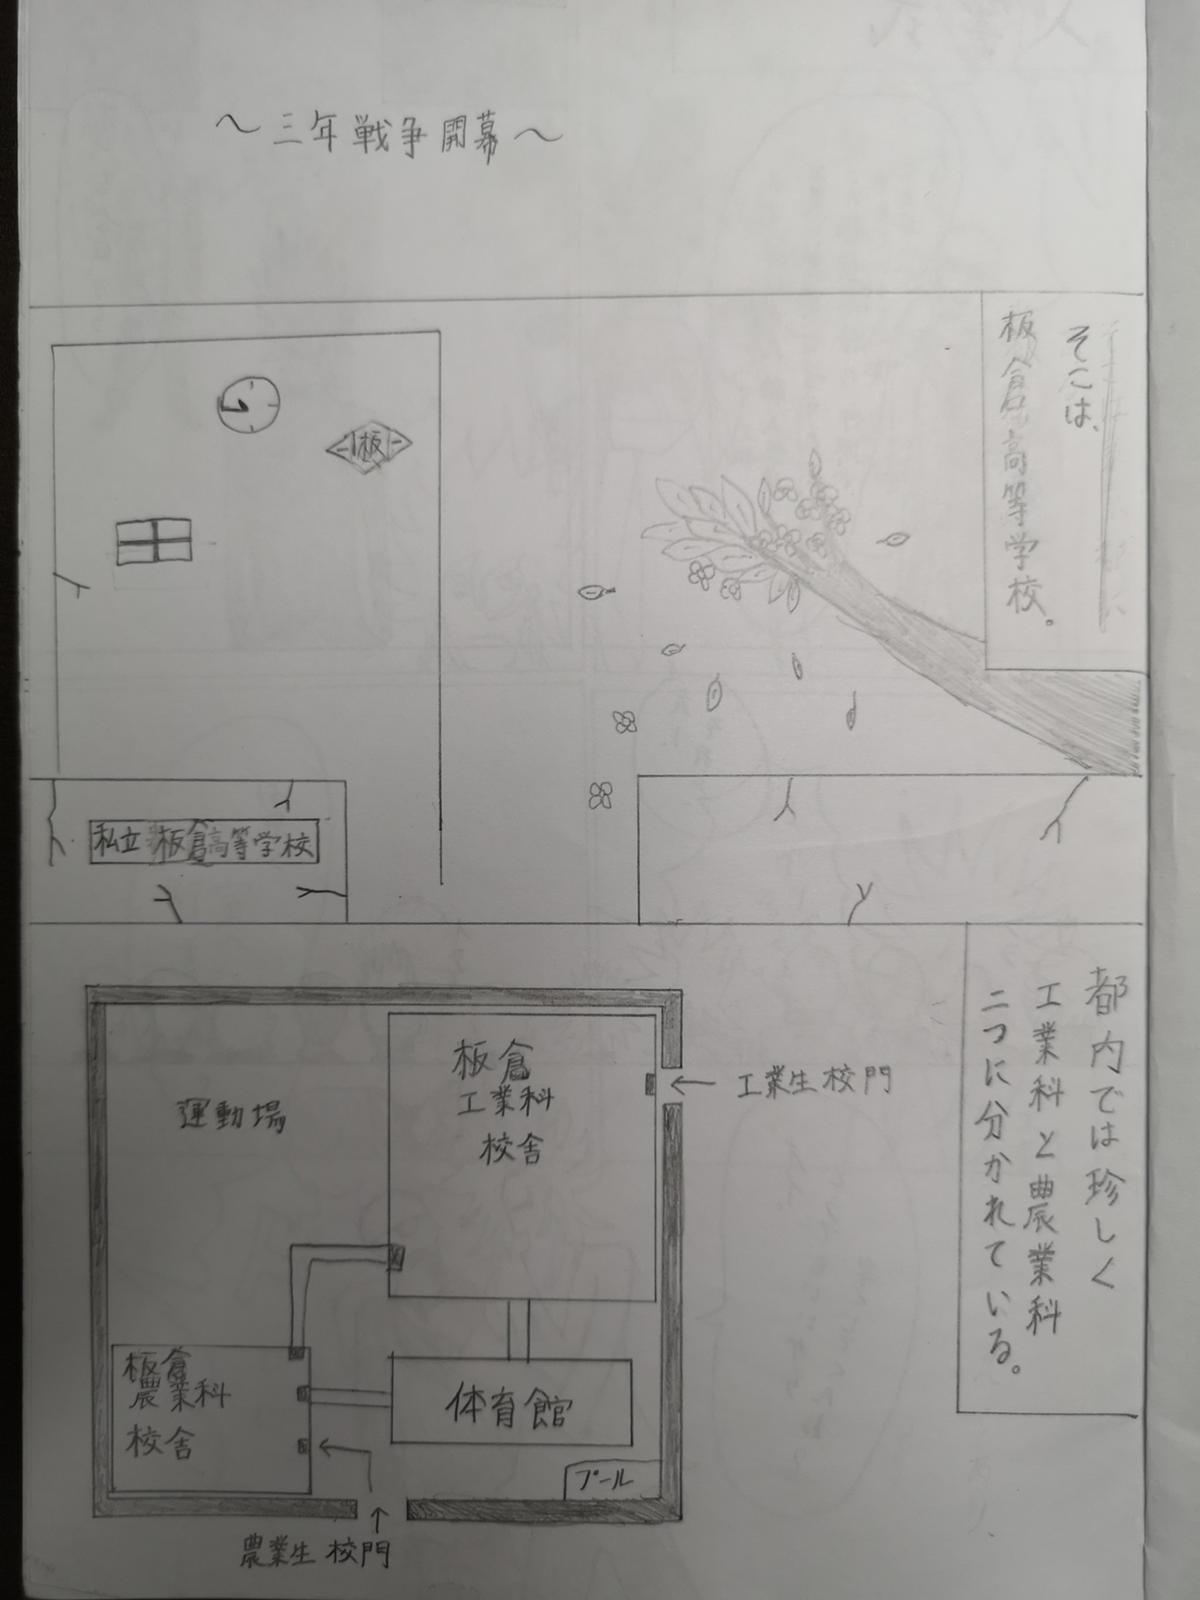 〜三年戦争開幕〜
そこは、
板倉高等学校。
板
私立 板倉高等学校
都内では珍しく
工業科と農業科
二つに分かれている。
板倉
工業科
校舎
工業生校門
運動場
板倉
農業科
校舎
体育館
プール
農業生校門